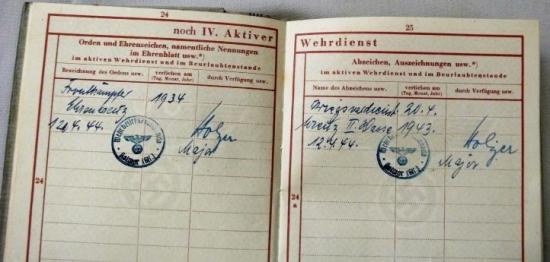 24
noch IV. Aktiver
Orden und Ehrenzeichen, namentliche Nennungen
im Ehrenblatt usw.*)
im aktiven Wehrdienst und im Beurlaubtenstande
Bezeichnung des Ordens usw.
verliehen am
(Tag, Monat, Jahr)
durch Verfügung usw.
Frontkämpfer
Ehrenkreuz
1934
12.4.44.
Holzer
Major
24
25
Wehrdienst
Abzeichen, Auszeichnungen usw.*)
im aktiven Wehrdienst und im Beurlaubtenstande
Name des Abzeichens usw.
verliehen am
(Tag, Monat, Jahr)
durch Verfügung usw.
Kriegsverdienst 20.4.
kreuz II. Klasse 1943.
12.4.44.
Holzer
Major
24
*